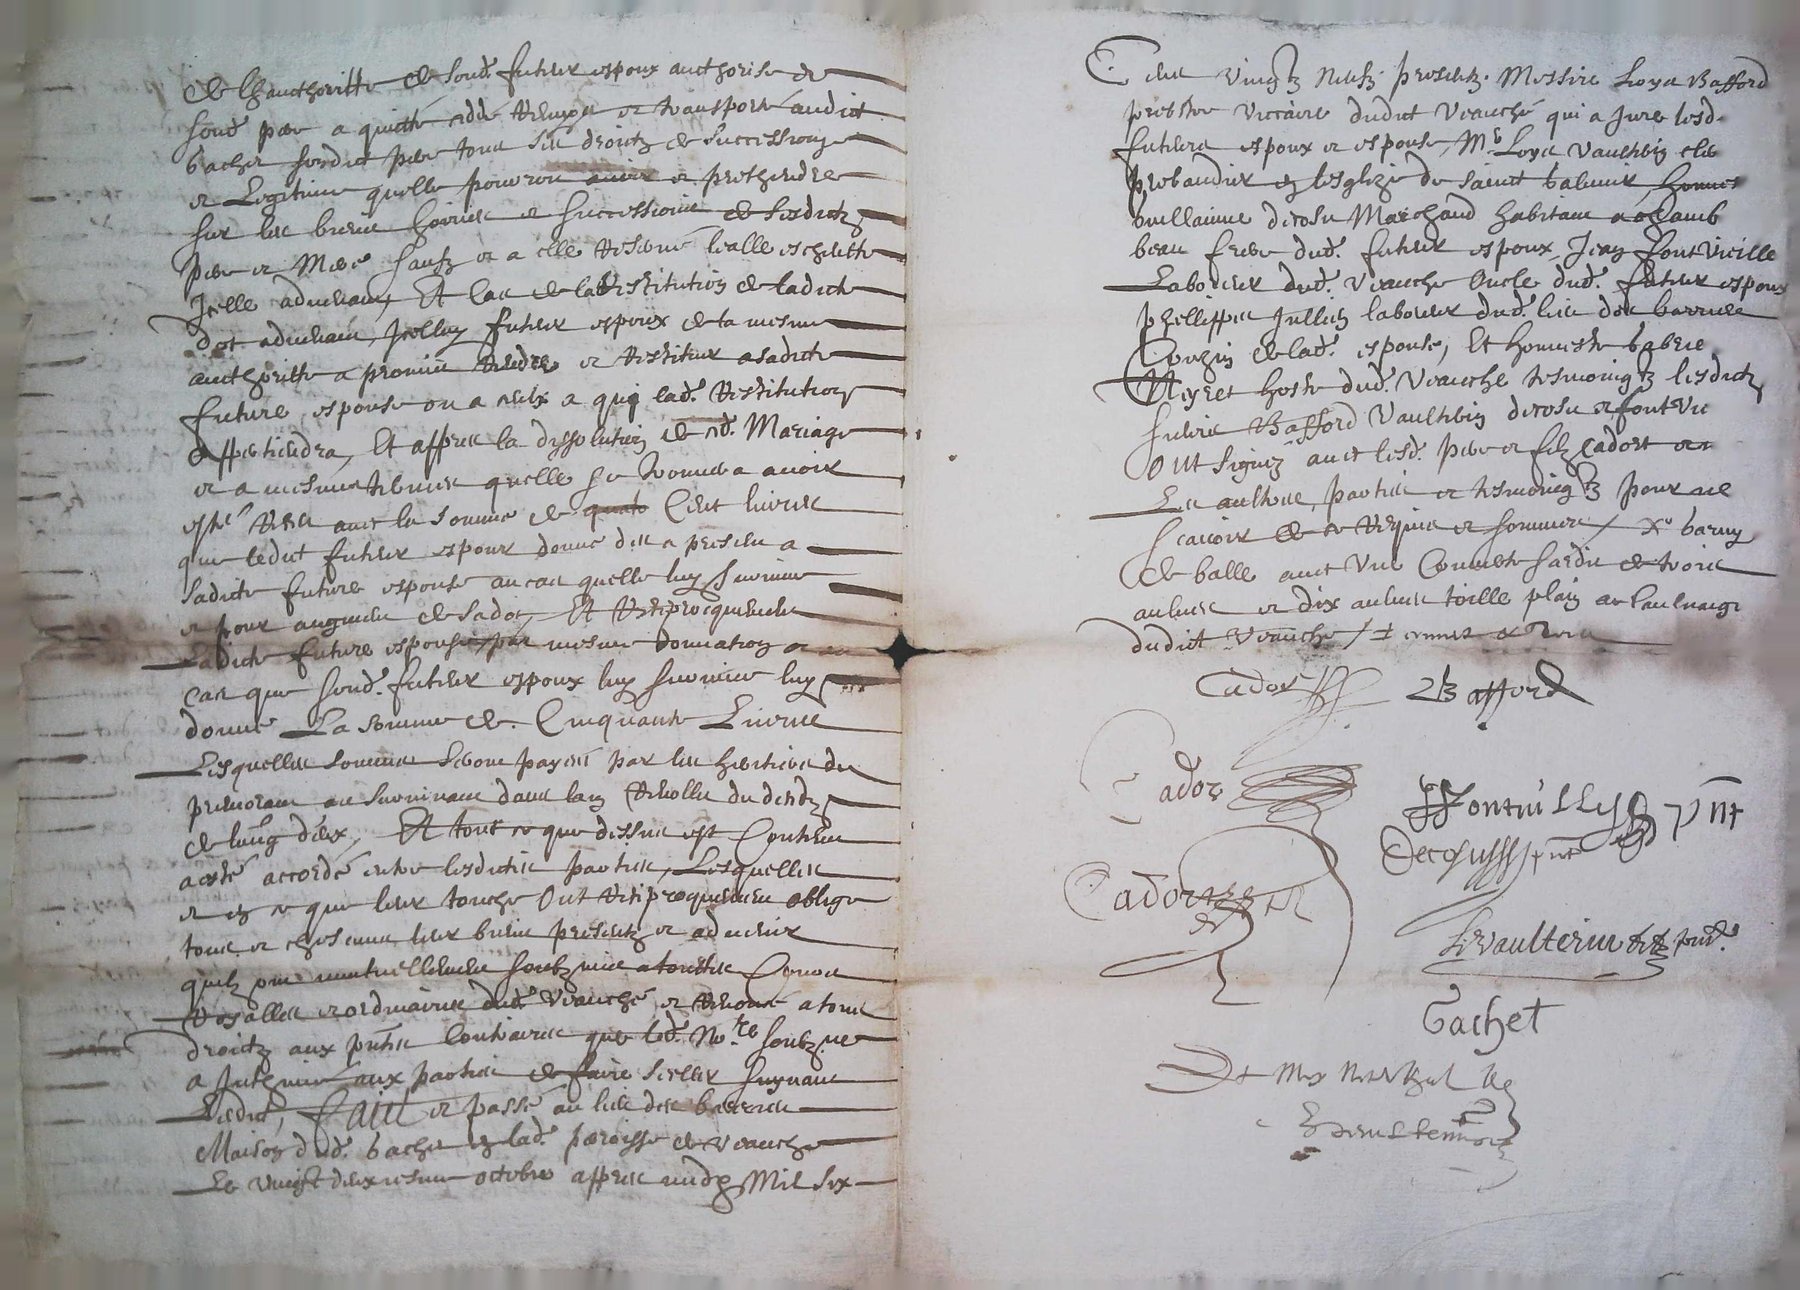 de lauthoritte de sond. futeur espoux authorise de
sond. pere a quitté cédé remys et transporté audict
bachet sondict pere tous ses droictz de successions
et legitime quelle pourroit avoir et prethendre
sur les biens hoiries et successions de sesdictz
pere et mere sauf et a elle reservé lealle escheutte
Icelle advenant, Et cas de la restitution de ladicte
dot advenant, Icelluy futeur espoux de la mesme
authoritte a promis rendre et restituer a sadicte
future espouse ou a ceux a qui lad. restitution
appartiendra, Et appres la dissolution de cd. Mariage
et a mesmes termes quelle se trouvera avoir
esté receue avec la somme de cent livres
que ledict futeur espoux donne des a present a
sadicte future espouse au cas quelle luy survive
et pour augment de sa dot, Et reciproquement
Ladicte future espouse par mesme donnation et en
cas que sond. futeur espoux luy survive luy
donne La somme de Cinquante Livres
Lesquelles sommes seront payées par les heritiers du
premourant au survivant dans lan revollu du decedz
de lung deux, Et tout ce que dessus est contenu
a esté accordé entre lesdictes parties, Lesquelles
et en ce que leur touche ont reciproquement obligé
tous et chescuns leur biens presentz et advenir
quilz ont mutuellement soubzmis a touttes Cours
Royalles et ordinaires dud. Veauche et renoncé a tous
droictz aux pntes contraires que led. No.re soubz.ne
a Inthimé aux parties de faire seeller suyvant
Ledict, Faict et passé au lieu des barrieres
Maison dud. bachet en lad. parroisse de Veauche
Le vingt deuxiesme octobre appres midy Mil six
Cens Vingtz neufz presentz Messire Loys Bafford
prebstre viccaire dudict Veauche qui a Juré lesd.
futeurs espoux et espouse, Mr. Loys Vaulterin clerc
prebandier en lesglize de sainct Galmier, honneste
Guillaume decosu Marchand habitant a chamb
beau frere dud. futeur espoux, Jean fontvieille
Laboreur dud. Veauche Oncle dud. futeur espoux
phellippes Jullien laboreur dud. lieu des barrieres
Couzin de lad. espouse, Et honneste gabriel
Neyret hoste dud. Veauche tesmoingtz lesdictz
sieurs Bafford Vaulterin decosu et fontvie
Ont signez avec lesd. pere et filz Cadort et non
Les aultres parties et tesmoingtz pour ne
scavoir de ce requis et sommez
de balle avec une couverte sardie de trois
aulnes et dix aulnes toille plain
dudict Veauche
Cador
Bafford
Cador
Fontvielle pnt
Decosu pnt
Cador
L. Vaulterin
Gachet